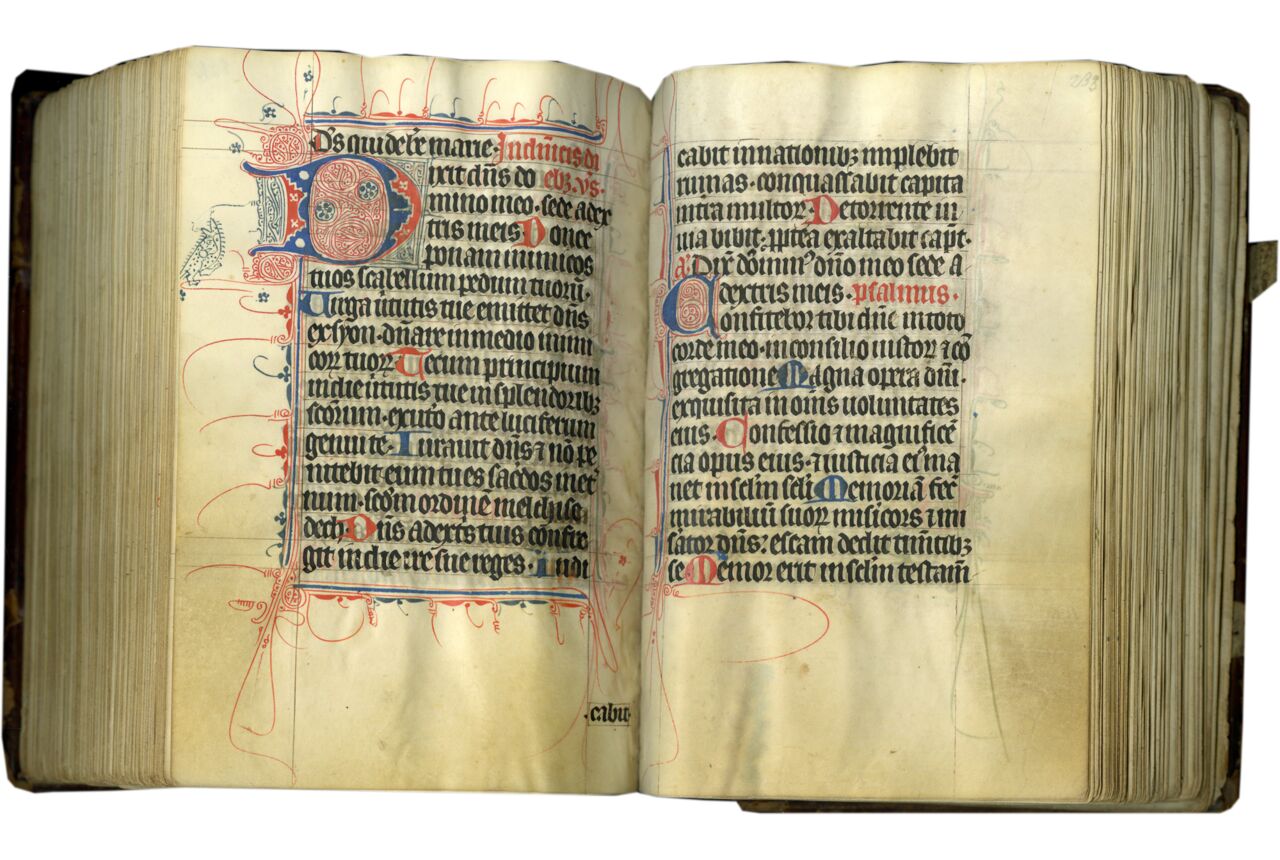 Ds qui de bte marie. In dnicis di
Dixit dns do ebz. vs.
mino meo. sede a dex
tris meis Donec
ponam inimicos
tuos scabellum pedum tuorũ.
Virga ỽtutis tue emittet dñs
ex syon. dñare in medio inimi
coꝝ tuoꝝ Tecum principium
in die ỽtutis tue in splendoribꝫ
scõrum. ex utero ante luciferum
genui te. Iurauit dñs ⁊ nõ pe
nitebit eum tu es sacdos in et̾
num. scdm ordinẽ melchise
dech. Dñs a dextris tuis confre
git in die ire sue reges. Iudi
.cabit.
233
cabit in nationibꝫ implebit
ruinas. conquassabit capita
in tra multoꝝ Detorrente in
uia bibit: ꝓpterea exaltabit capt̾.
a. Dix̾ dominꝰ dño meo sede a
dextris meis. psalmus.
Confitebor tibi dñe in toto
corde meo. in consilio iustoꝝ ⁊ cõ
gregatione Magna opera dñi.
exquisita in omĩs uoluntates
eius. Confessio ⁊ magnificẽ
cia opus eius. ⁊ iusticia eiꝰ ma
net in sclm scli Memoriã fec̾
mirabiliũ suoꝝ misicors ⁊ mi
sator dñs: escam dedit timẽtibꝫ
se Memor erit in sclm testam̃